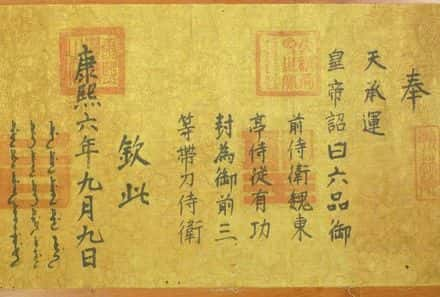 奉
天承運
皇帝詔曰六品御
前侍衛魏東
亭侍從有功
封為御前三
等帶刀侍衛
欽此
康熙六年九月九日